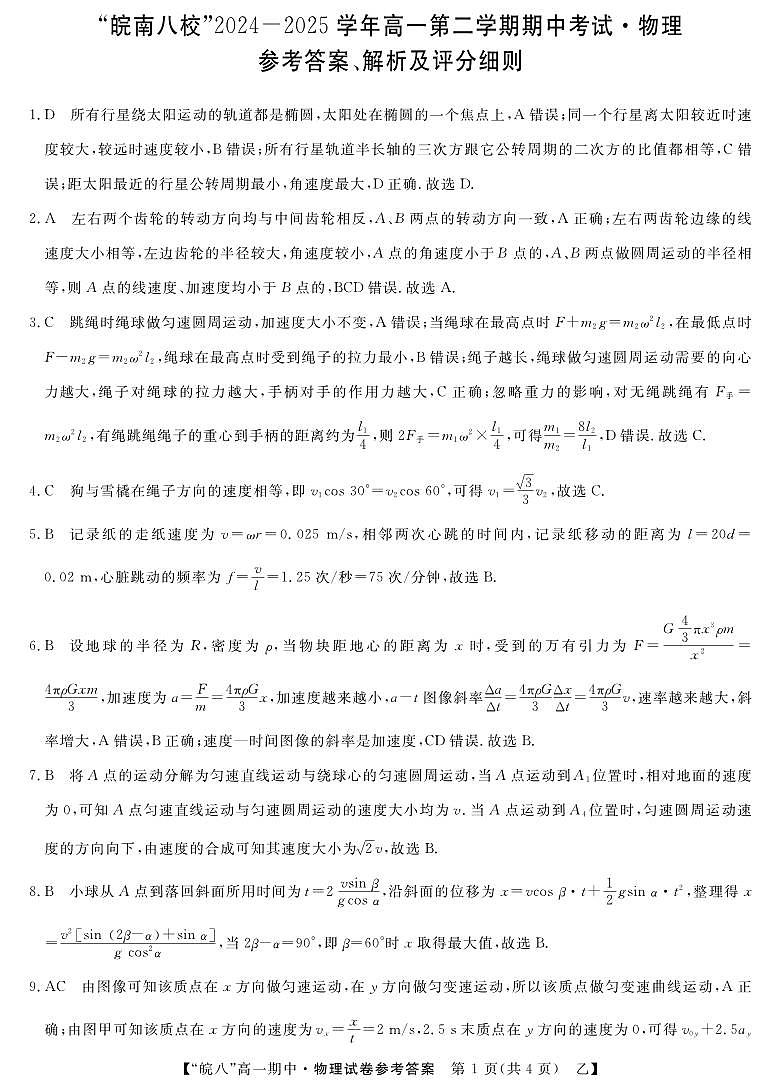 “皖南八校”2024－2025 学年高一第二学期期中考试·物理
参考答案、解析及评分细则
1. D 所有行星绕太阳运动的轨道都是椭圆,太阳处在椭圆的一个焦点上,A 错误;同一个行星离太阳较近时速
度较大,较远时速度较小,B 错误;所有行星轨道半长轴的三次方跟它公转周期的二次方的比值都相等,C 错
误;距太阳最近的行星公转周期最小,角速度最大,D 正确. 故选 D.
2. A 左右两个齿轮的转动方向均与中间齿轮相反,A、B 两点的转动方向一致,A 正确;左右两齿轮边缘的线
速度大小相等,左边齿轮的半径较大,角速度较小,A 点的角速度小于 B 点的,A、B 两点做圆周运动的半径相
等,则 A 点的线速度、加速度均小于 B 点的,BCD 错误. 故选 A.
3. C 跳绳时绳球做匀速圆周运动,加速度大小不变,A 错误;当绳球在最高点时 F＋m₂g＝m₂ω²l₂,在最低点时
F－m₂g＝m₂ω²l₂,绳球在最高点时受到绳子的拉力最小,B 错误;绳子越长,绳球做匀速圆周运动需要的向心
力越大,绳子对绳球的拉力越大,手柄对手的作用力越大,C 正确;忽略重力的影响,对无绳跳绳有 F手＝
m₂ω²l₂,有绳跳绳绳子的重心到手柄的距离约为l₁/4,则 2F手＝m₁ω²×l₁/4,可得m₁/m₂＝8l₂/l₁,D 错误. 故选 C.
4. C 狗与雪橇在绳子方向的速度相等,即 v₁cos 30°＝v₂cos 60°,可得 v₁＝√3/3 v₂,故选 C.
5. B 记录纸的走纸速度为 v＝ωr＝0.025 m/s,相邻两次心跳的时间内,记录纸移动的距离为 l＝20d＝
0.02 m,心脏跳动的频率为 f＝v/l＝1.25 次/秒＝75 次/分钟,故选 B.
6. B 设地球的半径为 R,密度为 ρ,当物块距地心的距离为 x 时,受到的万有引力为 F＝(G 4/3 πx³ρm)/x²＝
4πρGxm/3,加速度为 a＝F/m＝4πρG/3 x,加速度越来越小,a－t 图像斜率Δa/Δt＝4πρG/3 Δx/Δt＝4πρG/3 v,速率越来越大,斜
率增大,A 错误,B 正确;速度—时间图像的斜率是加速度,CD 错误. 故选 B.
7. B 将 A 点的运动分解为匀速直线运动与绕球心的匀速圆周运动,当 A 点运动到A₁位置时,相对地面的速度
为 0,可知 A 点匀速直线运动与匀速圆周运动的速度大小均为 v. 当 A 点运动到A₄位置时,匀速圆周运动速
度的方向向下,由速度的合成可知其速度大小为√2 v,故选 B.
8. B 小球从 A 点到落回斜面所用时间为 t＝2 vsin β/gcos α,沿斜面的位移为 x＝vcos β·t＋1/2 gsin α·t²,整理得 x
＝v²[sin (2β－α)＋sin α]/g cos²α,当 2β－α＝90°,即 β＝60°时 x 取得最大值,故选 B.
9. AC 由图像可知该质点在 x 方向做匀速运动,在 y 方向做匀变速运动,所以该质点做匀变速曲线运动,A 正
确;由图甲可知该质点在 x 方向的速度为 vₓ＝x/t＝2 m/s,2.5 s 末质点在 y 方向的速度为 0,可得 v₀y＋2.5ay
【“皖八”高一期中·物理试卷参考答案 第 1 页(共 4 页) 乙】